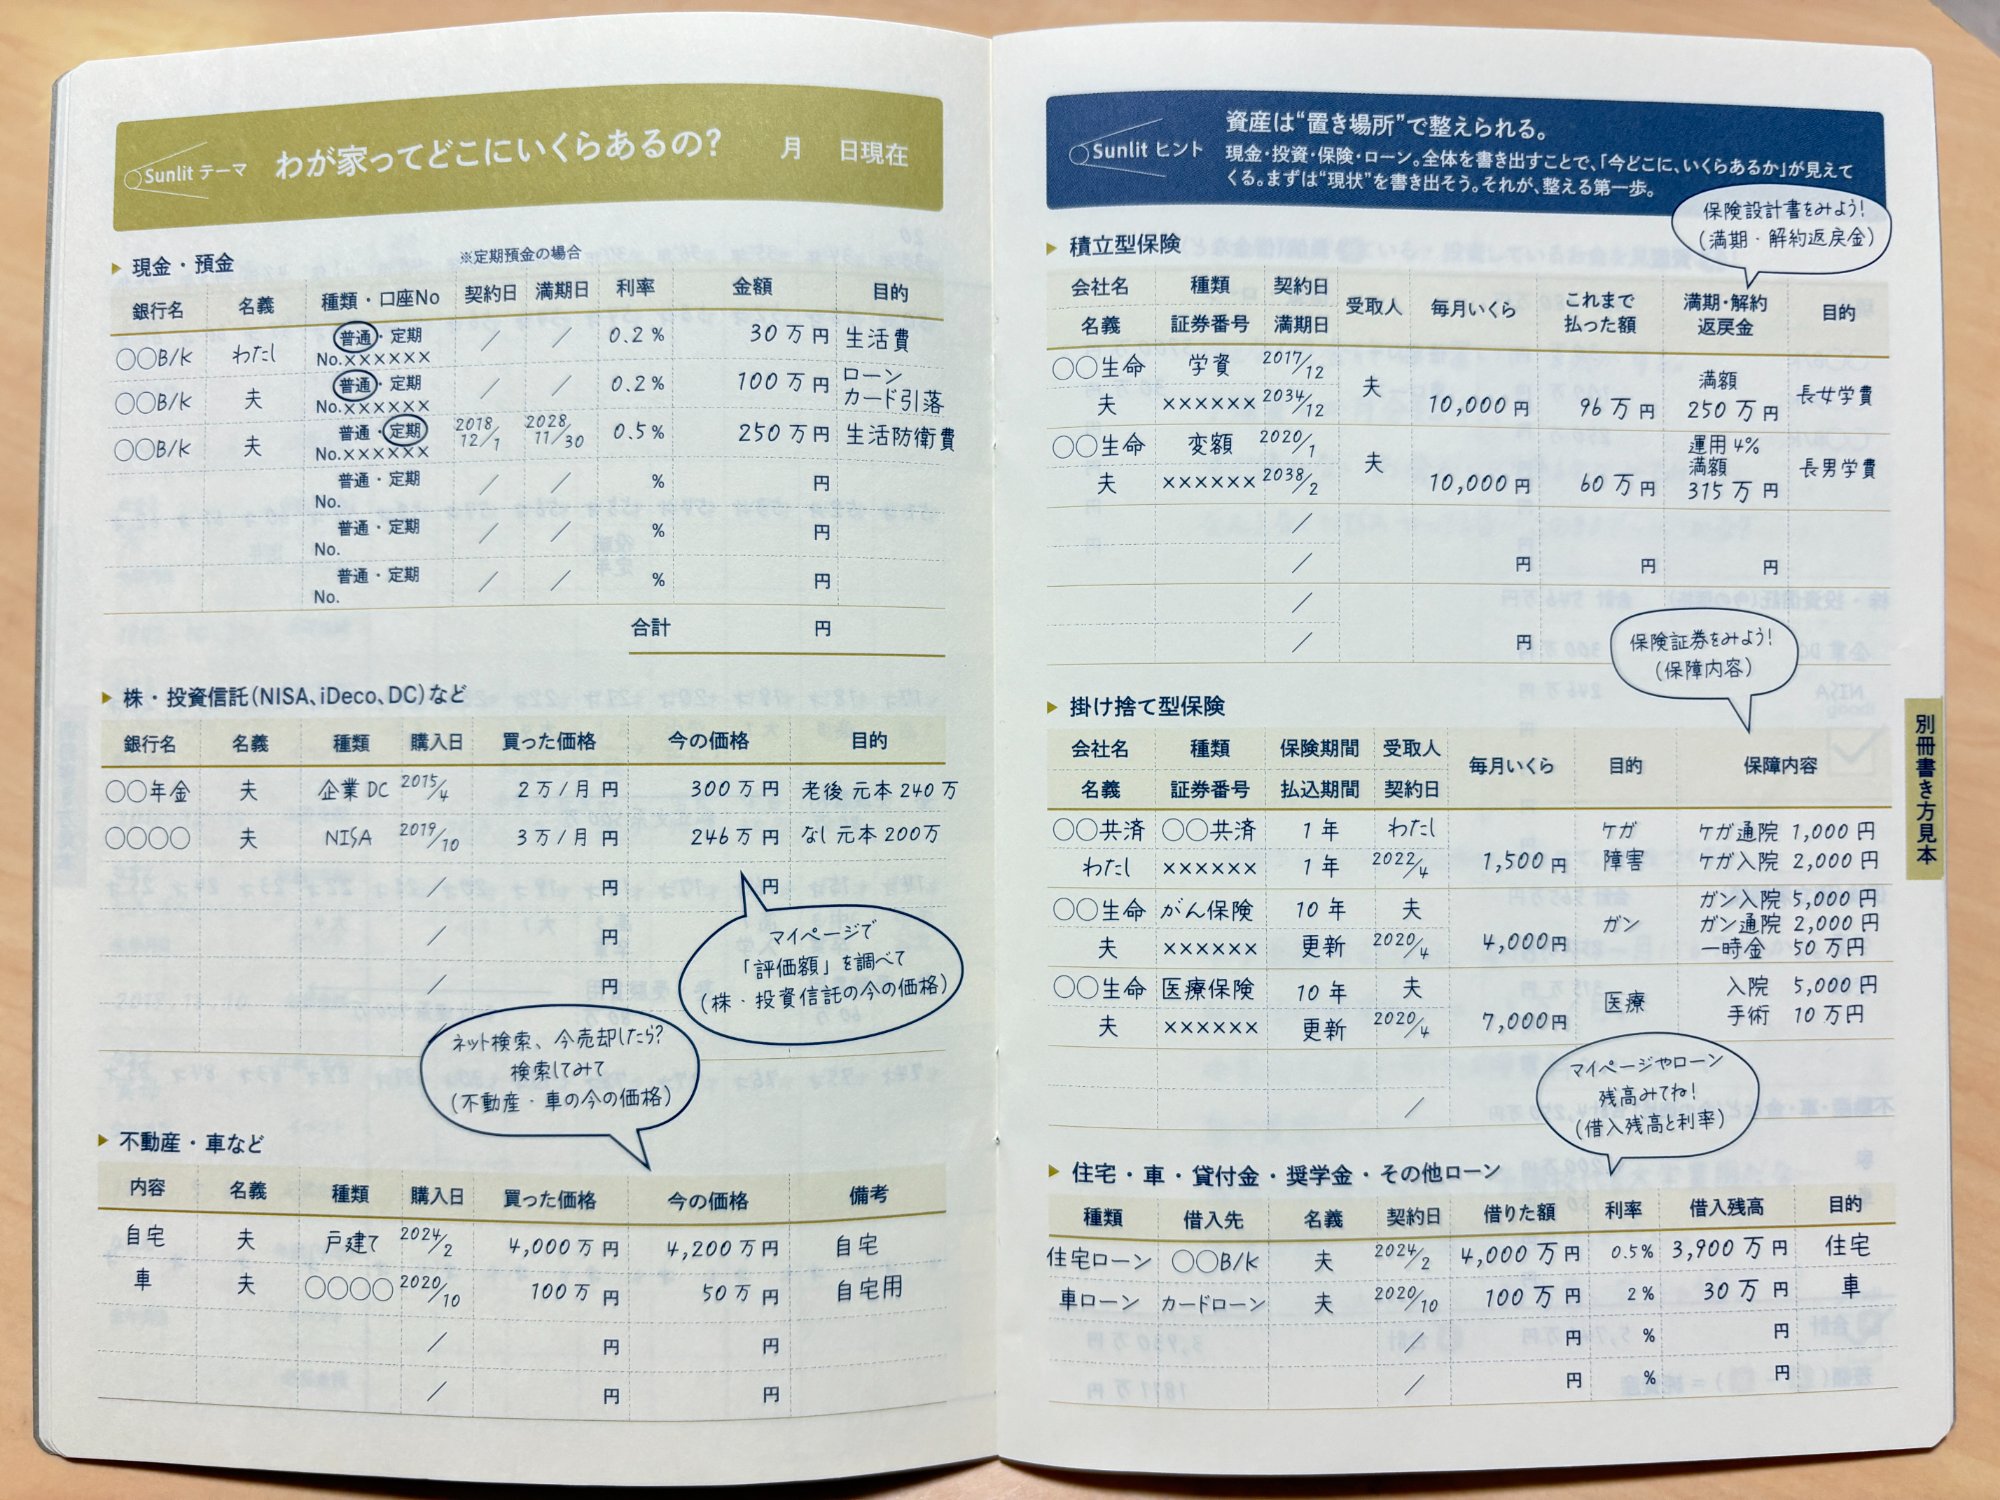 Sunlit テーマ わが家ってどこにいくらあるの? 月 日現在
現金・預金
※定期預金の場合
銀行名 名義 種類・口座No 契約日 満期日 利率 金額 目的
○○B/K わたし 普通・定期 No.×××××× / / 0.2% 30万円 生活費
○○B/K 夫 普通・定期 No.×××××× / / 0.2% 100万円 ローン カード引落
○○B/K 夫 普通・定期 No.×××××× 2018 12/1 2028 11/30 0.5% 250万円 生活防衛費
普通・定期 No. / / % 円
普通・定期 No. / / % 円
普通・定期 No. / / % 円
合計 円
株・投資信託(NISA、iDeco、DC)など
銀行名 名義 種類 購入日 買った価格 今の価格 目的
○○年金 夫 企業DC 2015/4 2万/月 円 300万円 老後 元本240万
○○○○ 夫 NISA 2019/10 3万/月 円 246万円 なし 元本200万
/ 円 円
/ 円
/ 円
マイページで
「評価額」を調べて
(株・投資信託の今の価格)
ネット検索、今売却したら?
検索してみて
(不動産・車の今の価格)
不動産・車など
内容 名義 種類 購入日 買った価格 今の価格 備考
自宅 夫 戸建て 2024/2 4,000万円 4,200万円 自宅
車 夫 ○○○○ 2020/10 100万円 50万円 自宅用
/ 円 円
/ 円 円
Sunlit ヒント
資産は“置き場所”で整えられる。
現金・投資・保険・ローン。全体を書き出すことで、「今どこに、いくらあるか」が見えて
くる。まずは“現状”を書き出そう。それが、整える第一歩。
保険設計書をみよう!
(満期・解約返戻金)
積立型保険
会社名 種類 契約日 受取人 毎月いくら これまで払った額 満期・解約返戻金 目的
名義 証券番号 満期日
○○生命 学資 2017/12 夫 10,000円 96万円 満額 250万円 長女学費
夫 ×××××× 2034/12
○○生命 変額 2020/1 夫 10,000円 60万円 運用4% 満額 315万円 長男学費
夫 ×××××× 2038/2
/
/ 円 円 円
/
/ 円
保険証券をみよう!
(保障内容)
掛け捨て型保険
会社名 種類 保険期間 受取人 毎月いくら 目的 保障内容
名義 証券番号 払込期間 契約日
○○共済 ○○共済 1年 わたし 1,500円 ケガ 障害 ケガ通院 1,000円
わたし ×××××× 1年 2022/4 ケガ入院 2,000円
○○生命 がん保険 10年 夫 4,000円 ガン ガン入院 5,000円
ガン通院 2,000円
夫 ×××××× 更新 2020/4 一時金 50万円
○○生命 医療保険 10年 夫 7,000円 医療 入院 5,000円
夫 ×××××× 更新 2020/4 手術 10万円
/
マイページやローン
残高みてね!
(借入残高と利率)
住宅・車・貸付金・奨学金・その他ローン
種類 借入先 名義 契約日 借りた額 利率 借入残高 目的
住宅ローン ○○B/K 夫 2024/2 4,000万円 0.5% 3,900万円 住宅
車ローン カードローン 夫 2020/10 100万円 2% 30万円 車
/ 円 % 円
/ 円 % 円
別冊書き方見本